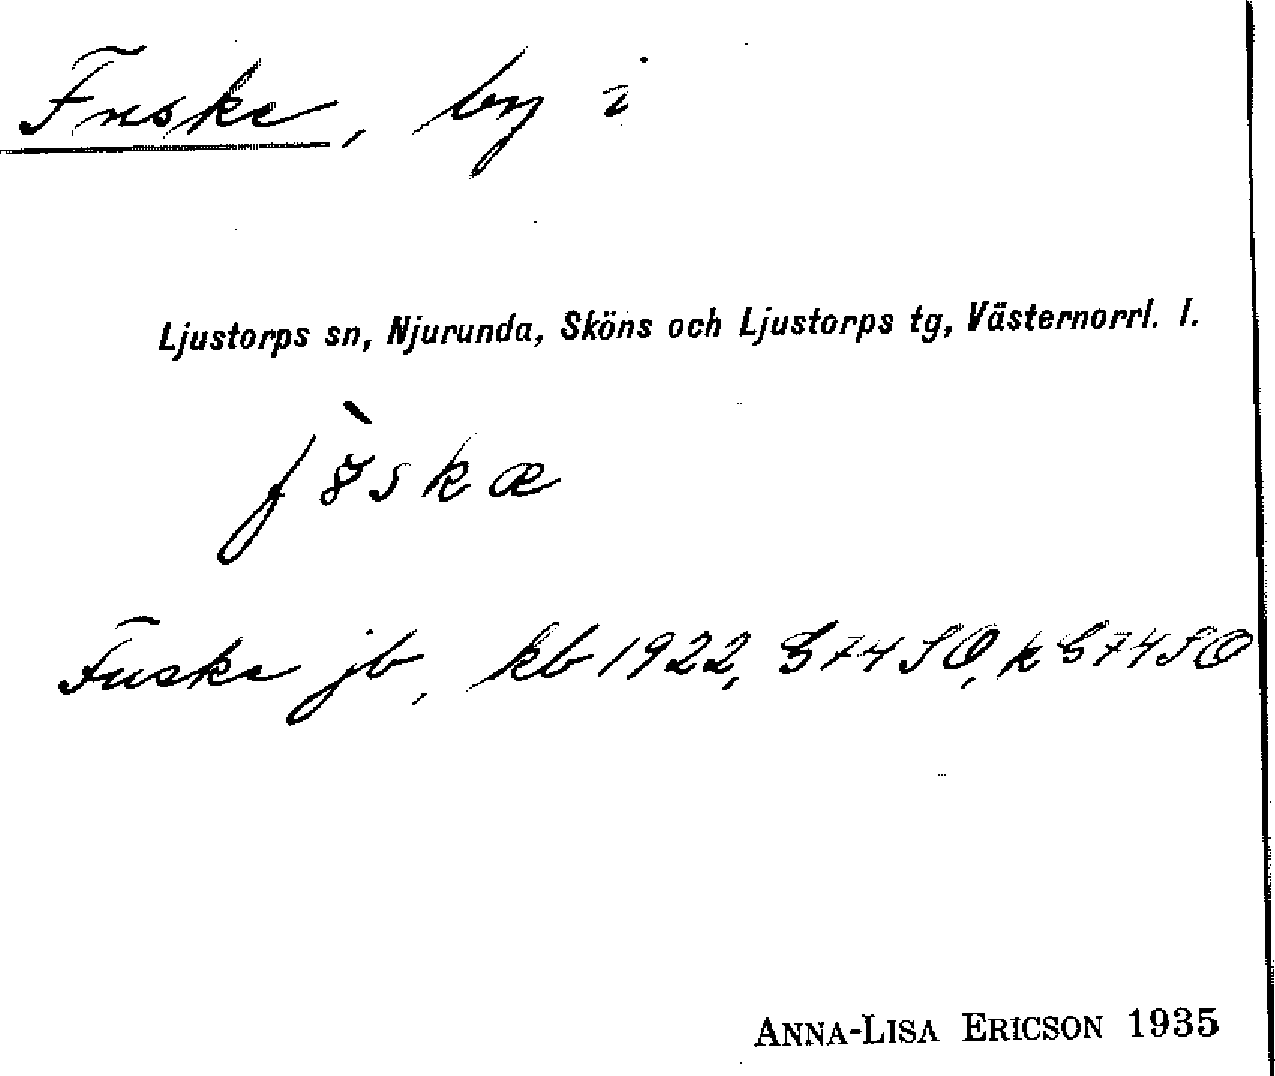 Fuske, by i
Ljustorps sn, Njurunda, Sköns och Ljustorps tg, Västernorrl. l.
Fuske jb, kb 1922, G74SO, kG74SO
ANNA-LISA ERICSON 1935